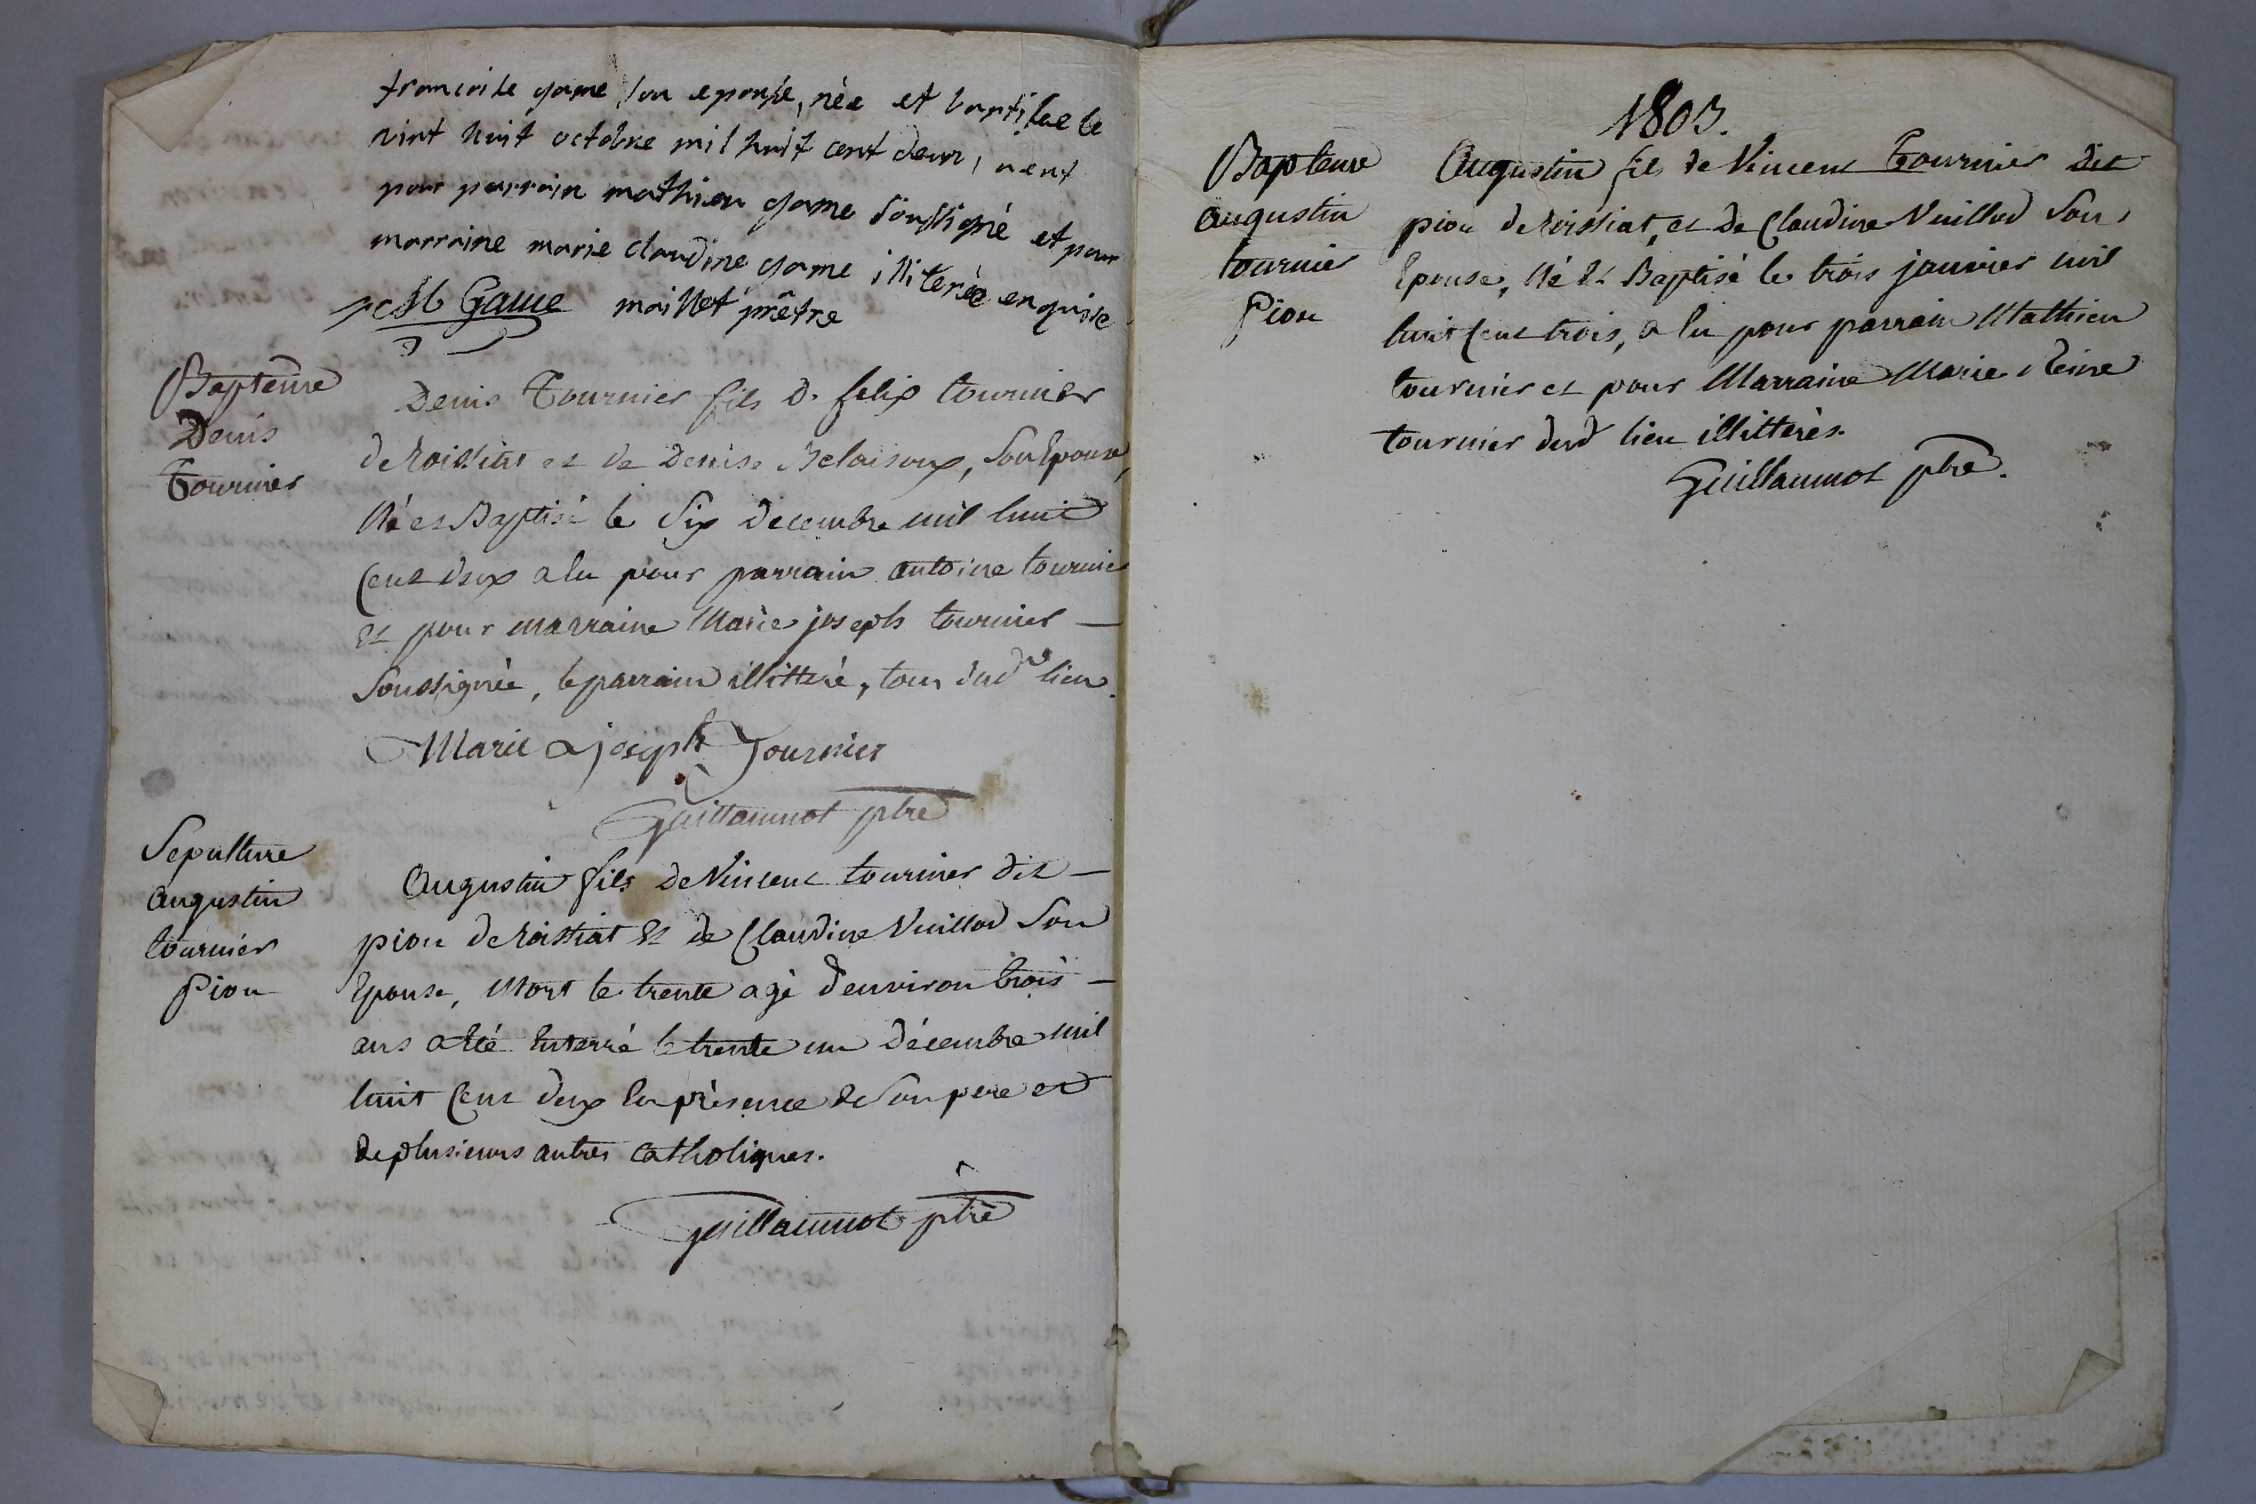 francoise game son epouse, née et baptisee le
vint huit octobre mil huit cent deux, aeut
pour parrain mathieu game soussigné et pour
marraine marie claudine game illiterée enquise
M Game maillet prêtre
Bapteme
Denis
Tournier
Denis Tournier fils de felix tournier
de roissiat et de Denise Belaisoux, son Epouse,
Né et Baptisé le six decembre mil huit
Cent deux a Eu pour parrain antoine tournier
Et pour marraine Marie joseph tournier —
Soussignée, le parrain illitteré, tous dud lieu.
Marie joseph Tournier
Guillaumot ptre
Sepulture
augustin
tournier
Piou
Augustin fils de Vincent tournier dit —
piou de roissiat Et de Claudine Vuillod Son
Epouse, Mort le trente agé d'environ trois —
ans a Eté Enterré le trente un décembre mil
huit Cent deux En présence de Son pere et
de plusieurs autres catholiques.
Guillaumot ptre
1803.
Bapteme
augustin
tournier
Piou
Augustin fils de Vincent Tournier dit
piou de roissiat, et de Claudine Vuillod Son
Epouse, Né Et Baptisé le trois janvier mil
huit Cent trois, a Eu pour parrain Mathieu
tournier et pour Marraine Marie Reine
tournier dud lieu illitterés.
Guillaumot ptre.